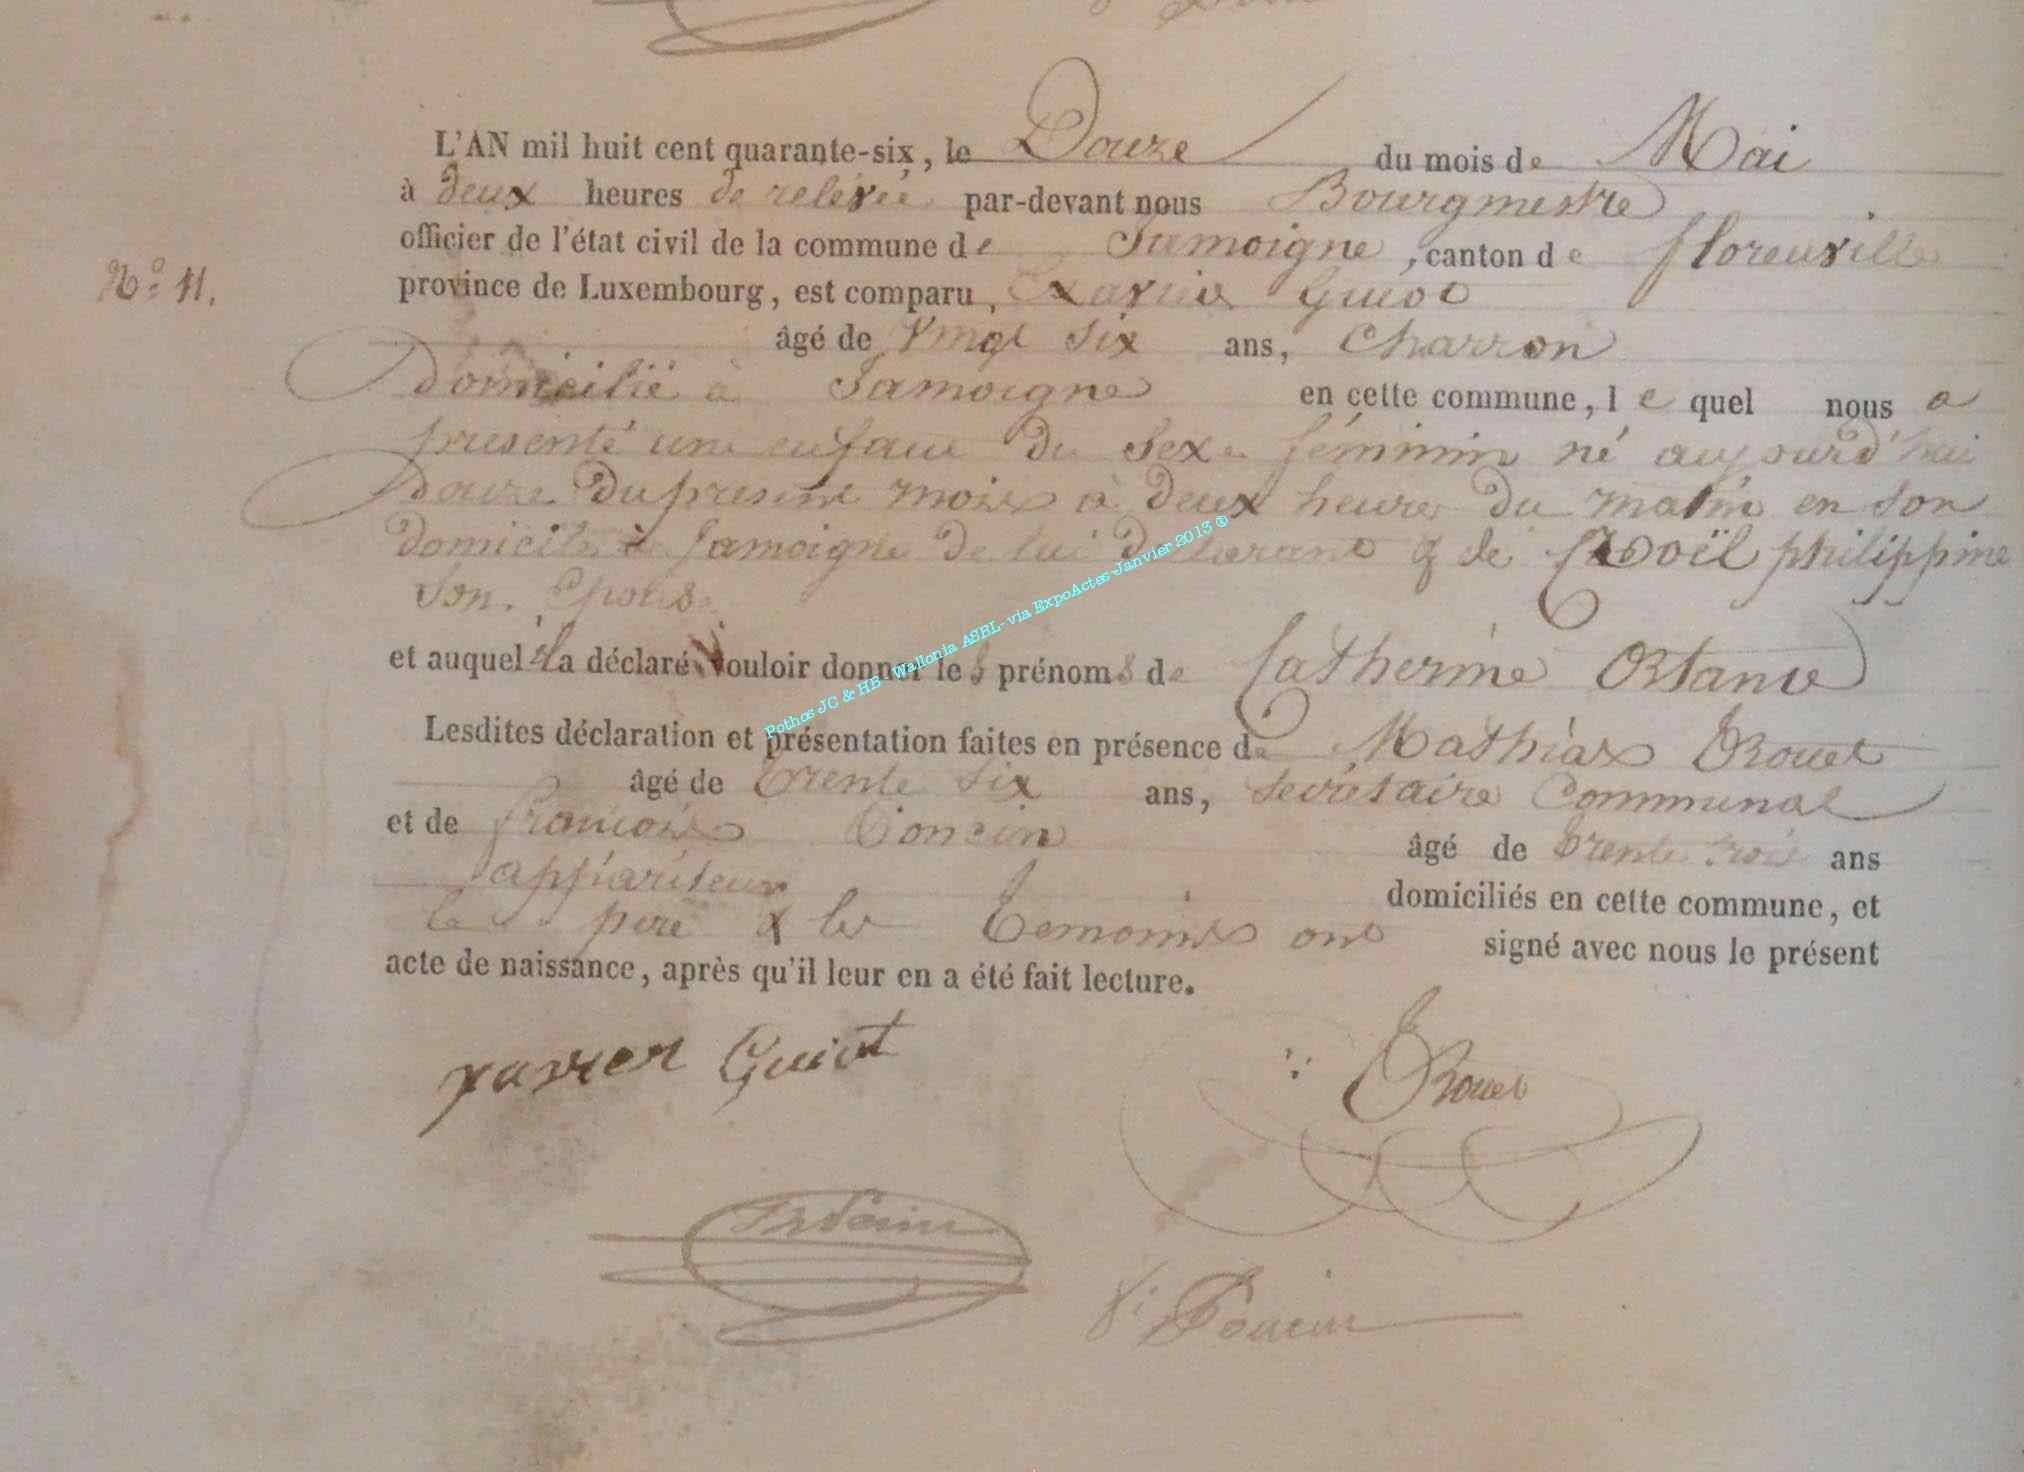 L'AN mil huit cent quarante-six, le Douze du mois de Mai
à deux heures de relevée par-devant nous Bourgmestre
officier de l'état civil de la commune de Jamoigne, canton de florenville
N° 11.
province de Luxembourg, est comparu, Xavier Guiot
âgé de Vingt Six ans, Charron
Domicilié à Jamoigne en cette commune, le quel nous a
présenté une enfant du Sexe féminin né aujourd'hui
Douze du present mois à deux heures du matin en son
domicile à Jamoigne de lui déclarant & de Noël philippine
Son Epouse
et auquel il a déclaré vouloir donner les prénoms de Catherine Ortance
Lesdites déclaration et présentation faites en présence de Mathias Rouet
âgé de trente Six ans, Secrétaire Communal
et de françois Poncin âgé de trente trois ans
appariteur domiciliés en cette commune, et
le pere & les temoins ont signé avec nous le présent
acte de naissance, après qu'il leur en a été fait lecture.
xavier Guiot
Rouet
Poncin
Pothos JC & HB Wallonia ASBL-via ExpoActes-Janvier 2013 ®